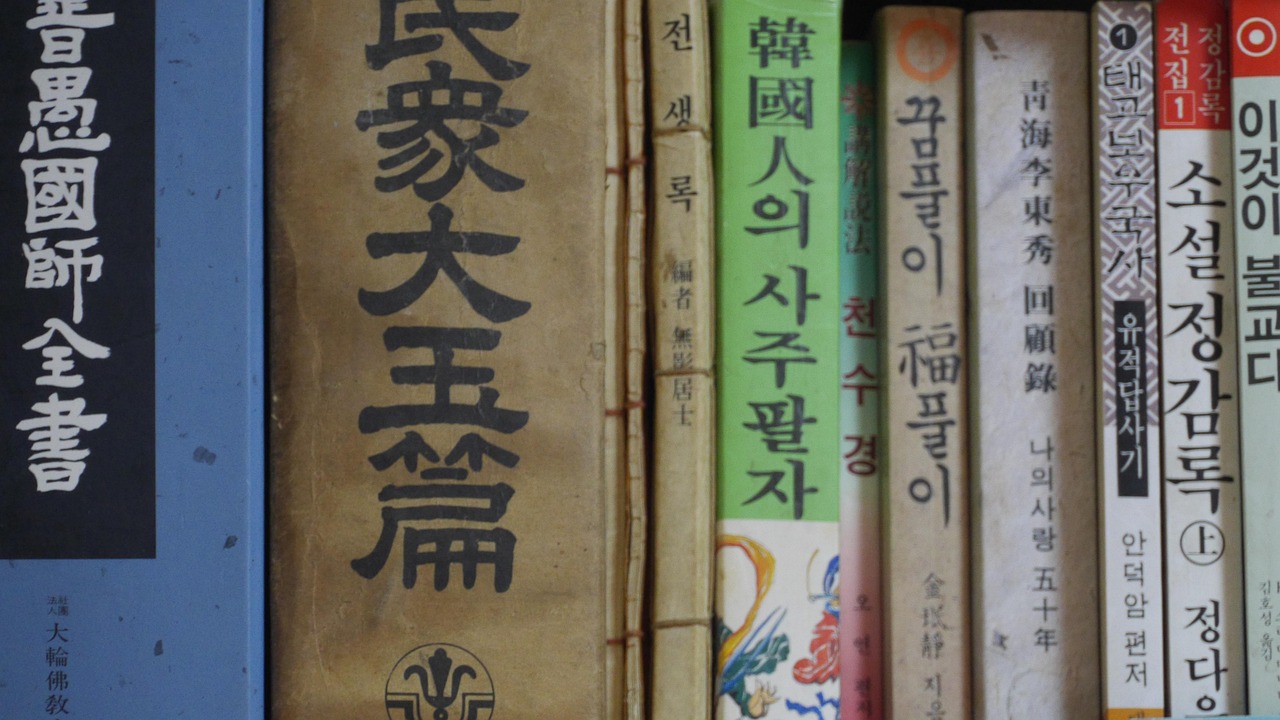 普愚國師全書
社團
法人
大輪佛教
民衆大玉篇
전생록
編者 無影居士
韓國人의 사주팔자
解說法
천수경
꿈풀이 福풀이
靑海李東秀 回顧錄
나의사랑 五十年
1
태고보우국사
유적답사기
안덕암 편저
정감록
전집 1
소설 정감록 上
정다운
이것이 불교다
김호성 옮김